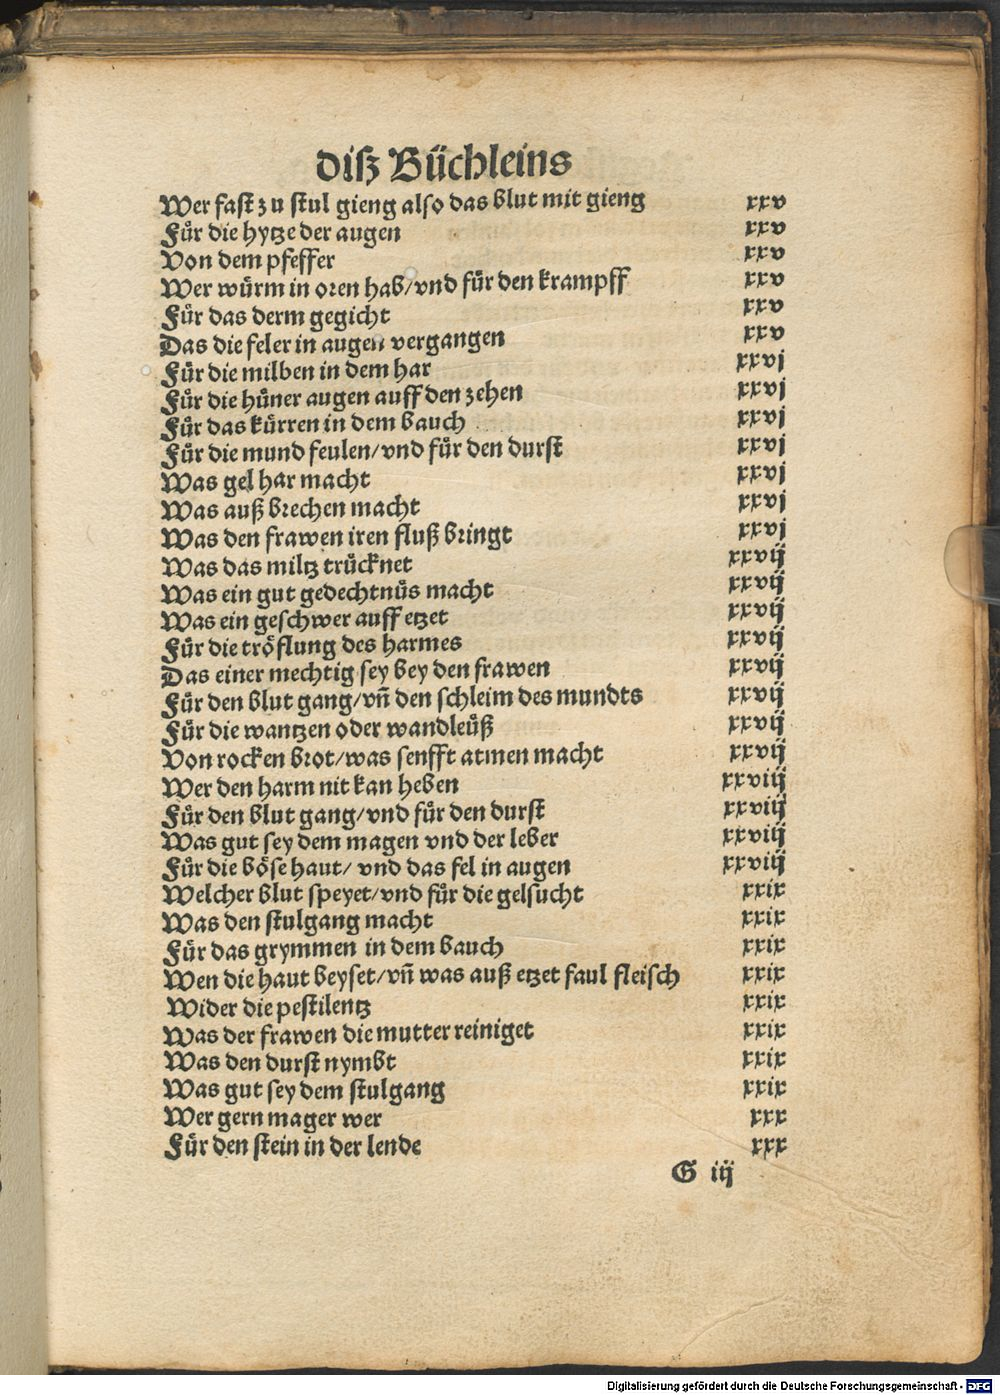 diß Büchleins
Wer fast zu stul gieng also das blut mit gieng xxv
Für die hytze der augen xxv
Von dem pfeffer xxv
Wer würm in oren hab/vnd für den krampff xxv
Für das derm gegicht xxv
Das die feler in augen vergangen xxv
Für die milben in dem har xxvj
Für die hüner augen auff den zehen xxvj
Für das kürren in dem bauch xxvj
Für die mund feulen/vnd für den durst xxvj
Was gel har macht xxvj
Was auß brechen macht xxvj
Was den frawen iren fluß bringt xxvj
Was das miltz trücknet xxvij
Was ein gut gedechtnüs macht xxvij
Was ein geschwer auff etzet xxvij
Für die tröflung des harmes xxvij
Das einer mechtig sey bey den frawen xxvij
Für den blut gang/vñ den schleim des mundts xxvij
Für die wantzen oder wandleüß xxvij
Von rocken brot/was senfft atmen macht xxvij
Wer den harm nit kan heben xxviij
Für den blut gang/vnd für den durst xxviij
Was gut sey dem magen vnd der leber xxviij
Für die böse haut/ vnd das fel in augen xxviij
Welcher blut speyet/vnd für die gelsucht xxix
Was den stulgang macht xxix
Für das grymmen in dem bauch xxix
Wen die haut beyset/vñ was auß etzet faul fleisch xxix
Wider die pestilentz xxix
Was der frawen die mutter reiniget xxix
Was den durst nymbt xxix
Was gut sey dem stulgang xxix
Wer gern mager wer xxx
Für den stein in der lende xxx
G iij
Digitalisierung gefördert durch die Deutsche Forschungsgemeinschaft - DFG